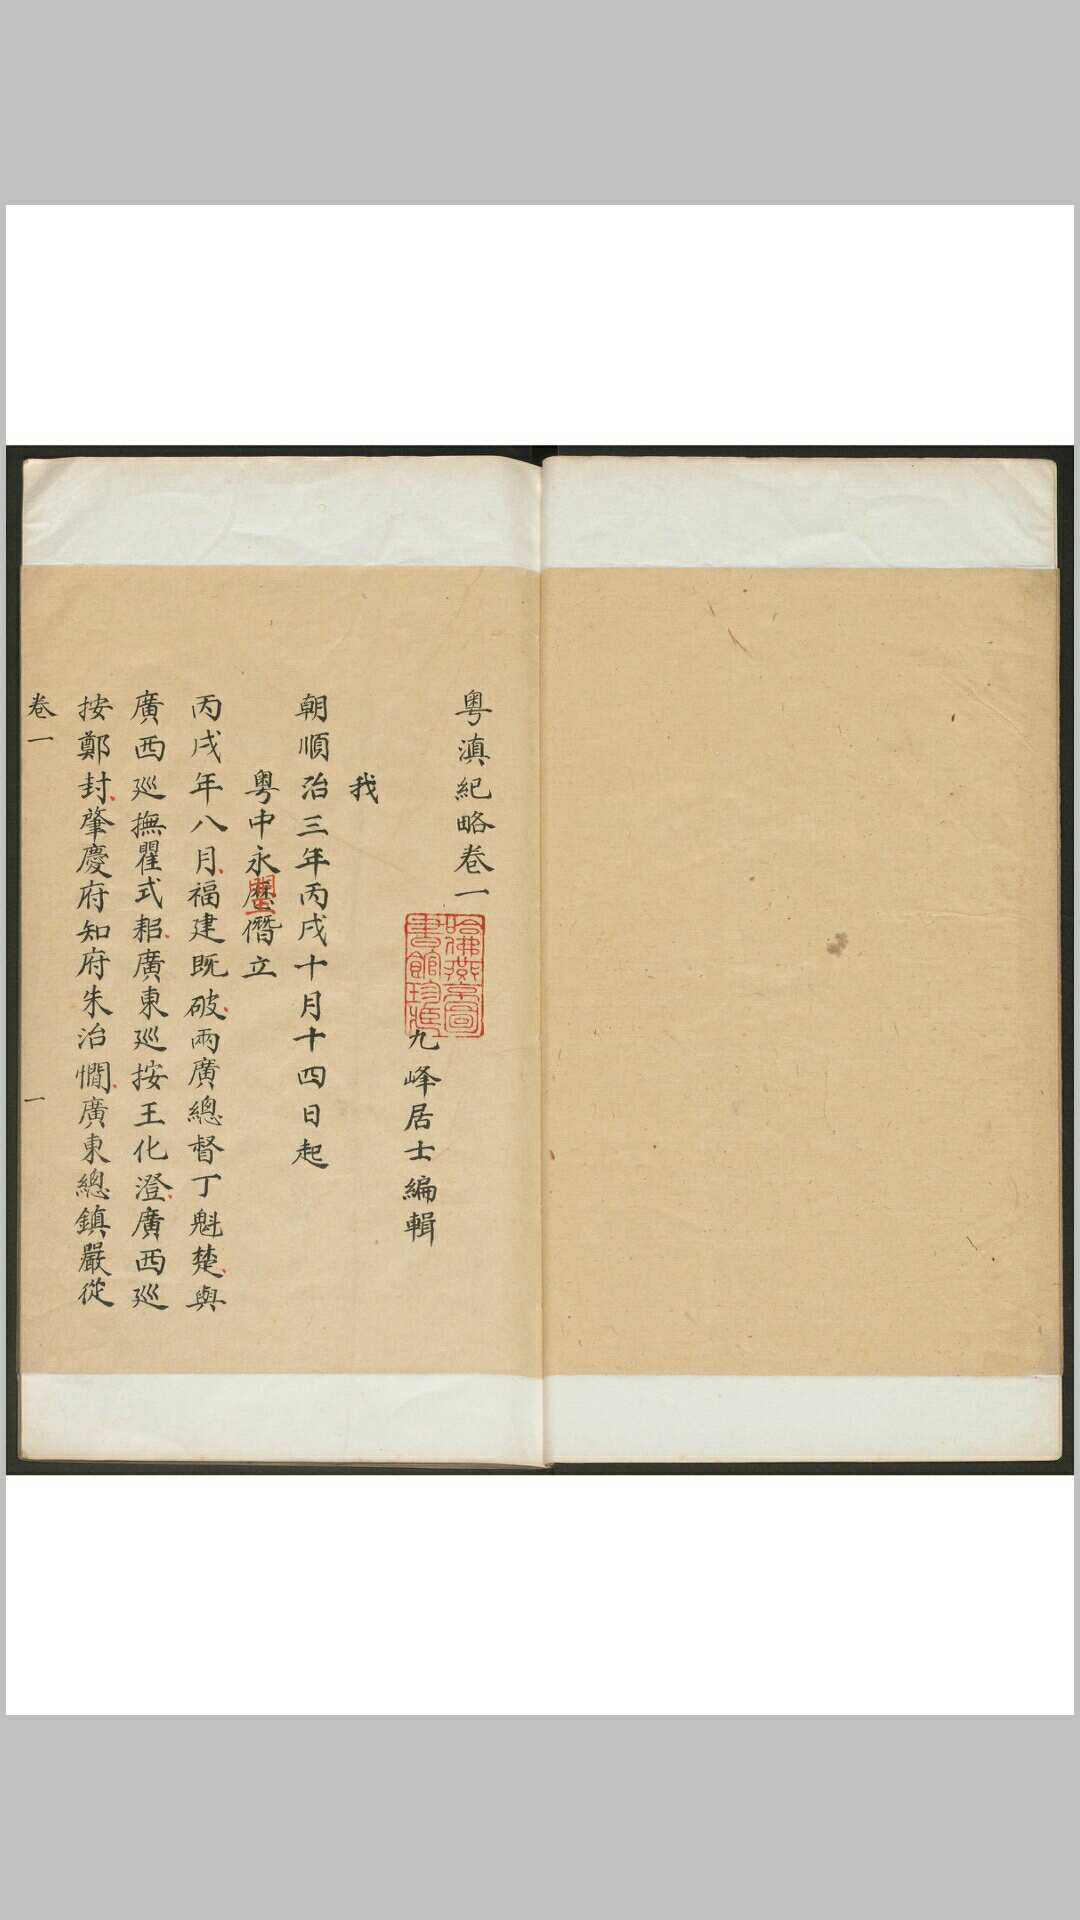 粵滇紀略卷一
九峰居士編輯
我
朝順治三年丙戌十月十四日起
粵中永曆僭立
丙戌年八月福建既破兩廣總督丁魁楚與
廣西廵撫瞿式耜廣東廵按王化澄廣西廵
按鄭封肇慶府知府朱治憪廣東總鎮嚴從
卷一
一
哈佛燕京圖
書館珍藏